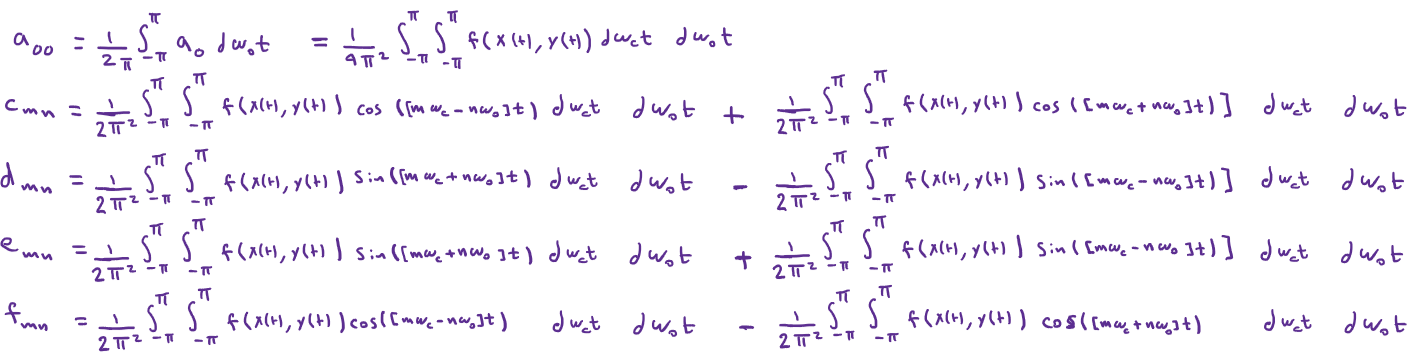 a₀₀ = 1/2π ∫_{-π}^{π} a₀ dω₀t = 1/4π² ∫_{-π}^{π} ∫_{-π}^{π} f(x(t), y(t)) dω_ct dω₀t
c_{mn} = 1/2π² ∫_{-π}^{π} ∫_{-π}^{π} f(x(t), y(t)) cos([mω_c - nω₀]t) dω_ct dω₀t + 1/2π² ∫_{-π}^{π} ∫_{-π}^{π} f(x(t), y(t)) cos([mω_c + nω₀]t)] dω_ct dω₀t
d_{mn} = 1/2π² ∫_{-π}^{π} ∫_{-π}^{π} f(x(t), y(t)) sin([mω_c + nω₀]t) dω_ct dω₀t - 1/2π² ∫_{-π}^{π} ∫_{-π}^{π} f(x(t), y(t)) sin([mω_c - nω₀]t)] dω_ct dω₀t
e_{mn} = 1/2π² ∫_{-π}^{π} ∫_{-π}^{π} f(x(t), y(t)) sin([mω_c + nω₀]t) dω_ct dω₀t + 1/2π² ∫_{-π}^{π} ∫_{-π}^{π} f(x(t), y(t)) sin([mω_c - nω₀]t)] dω_ct dω₀t
f_{mn} = 1/2π² ∫_{-π}^{π} ∫_{-π}^{π} f(x(t), y(t)) cos([mω_c - nω₀]t) dω_ct dω₀t - 1/2π² ∫_{-π}^{π} ∫_{-π}^{π} f(x(t), y(t)) cos([mω_c + nω₀]t) dω_ct dω₀t